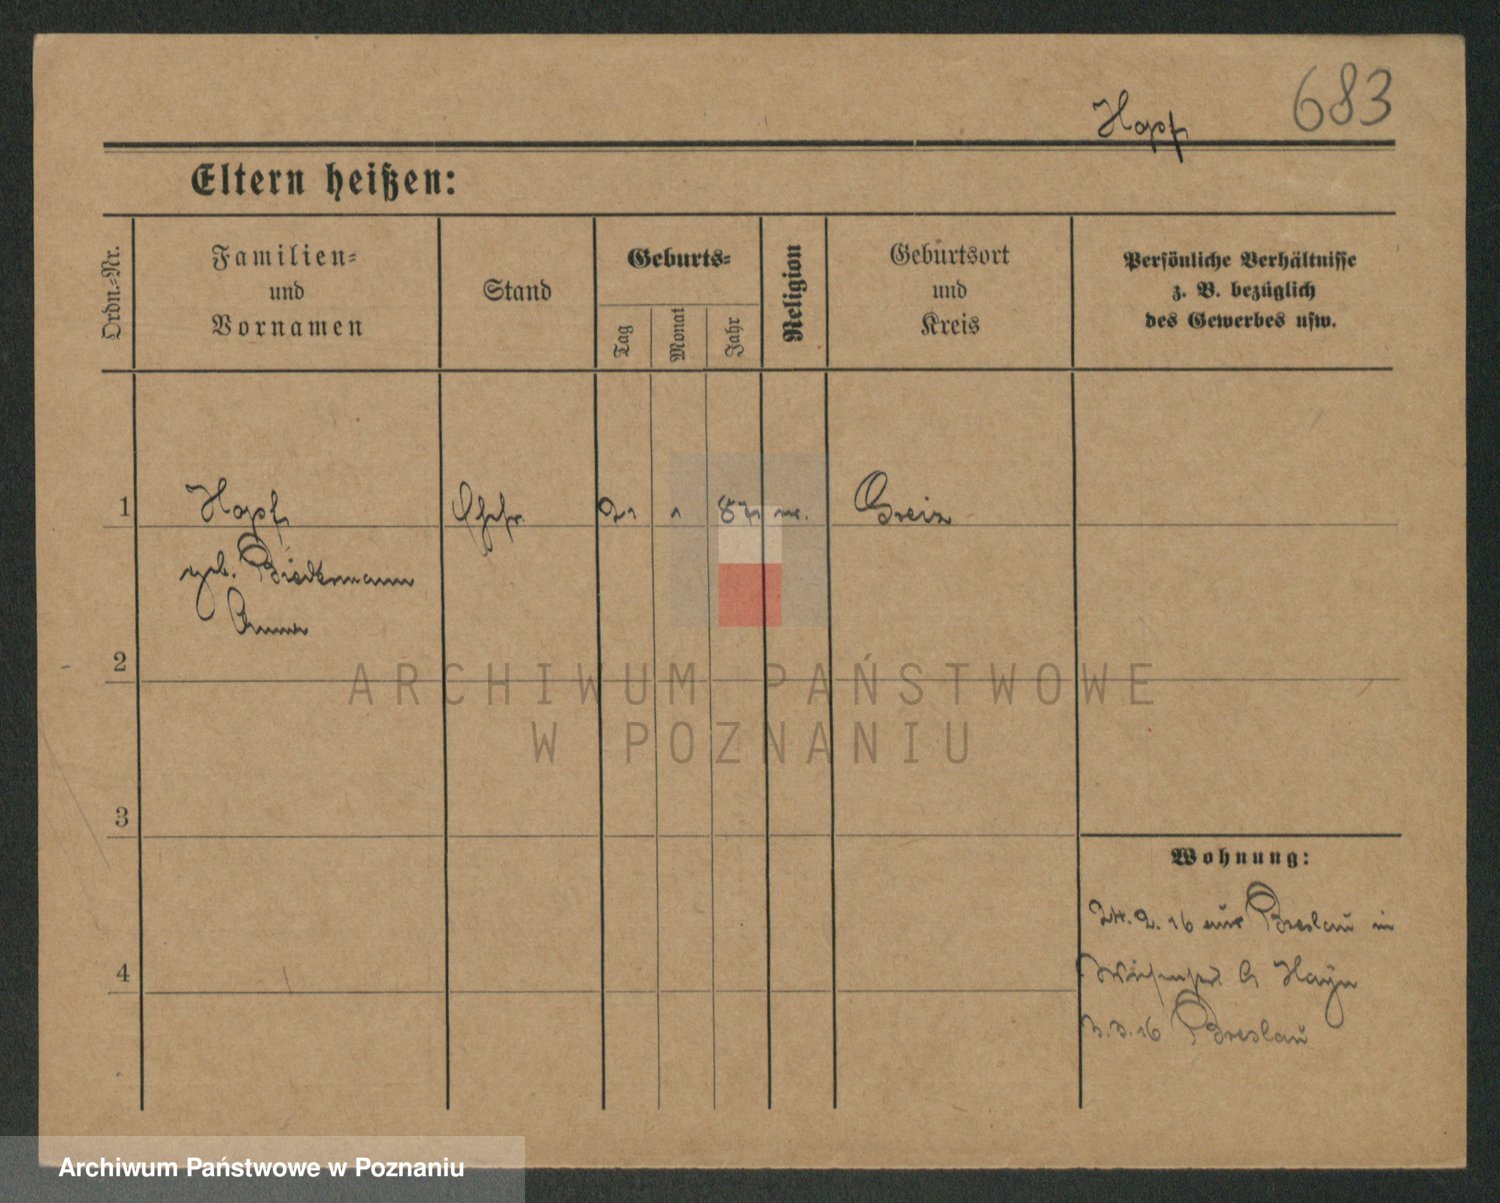 683
Hopf
Eltern heißen:
Ordn.-Nr.
Familien-
und
Vornamen
Stand
Geburts-
Tag
Monat
Jahr
Religion
Geburtsort
und
Kreis
Persönliche Verhältnisse
z. B. bezüglich
des Gewerbes usw.
1
Hopf
Ehefr.
21
1
87
Greiz
geb. Biedermann
Anna
2
3
4
Wohnung:
24. 2. 16 aus Breslau in
Hayn
3. 3. 16 Breslau
ARCHIWUM PAŃSTWOWE
W POZNANIU
Archiwum Państwowe w Poznaniu